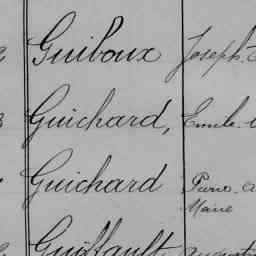 Guiboux Joseph
Guichard, Emile
Guichard Pierre
Marie
Guiffault